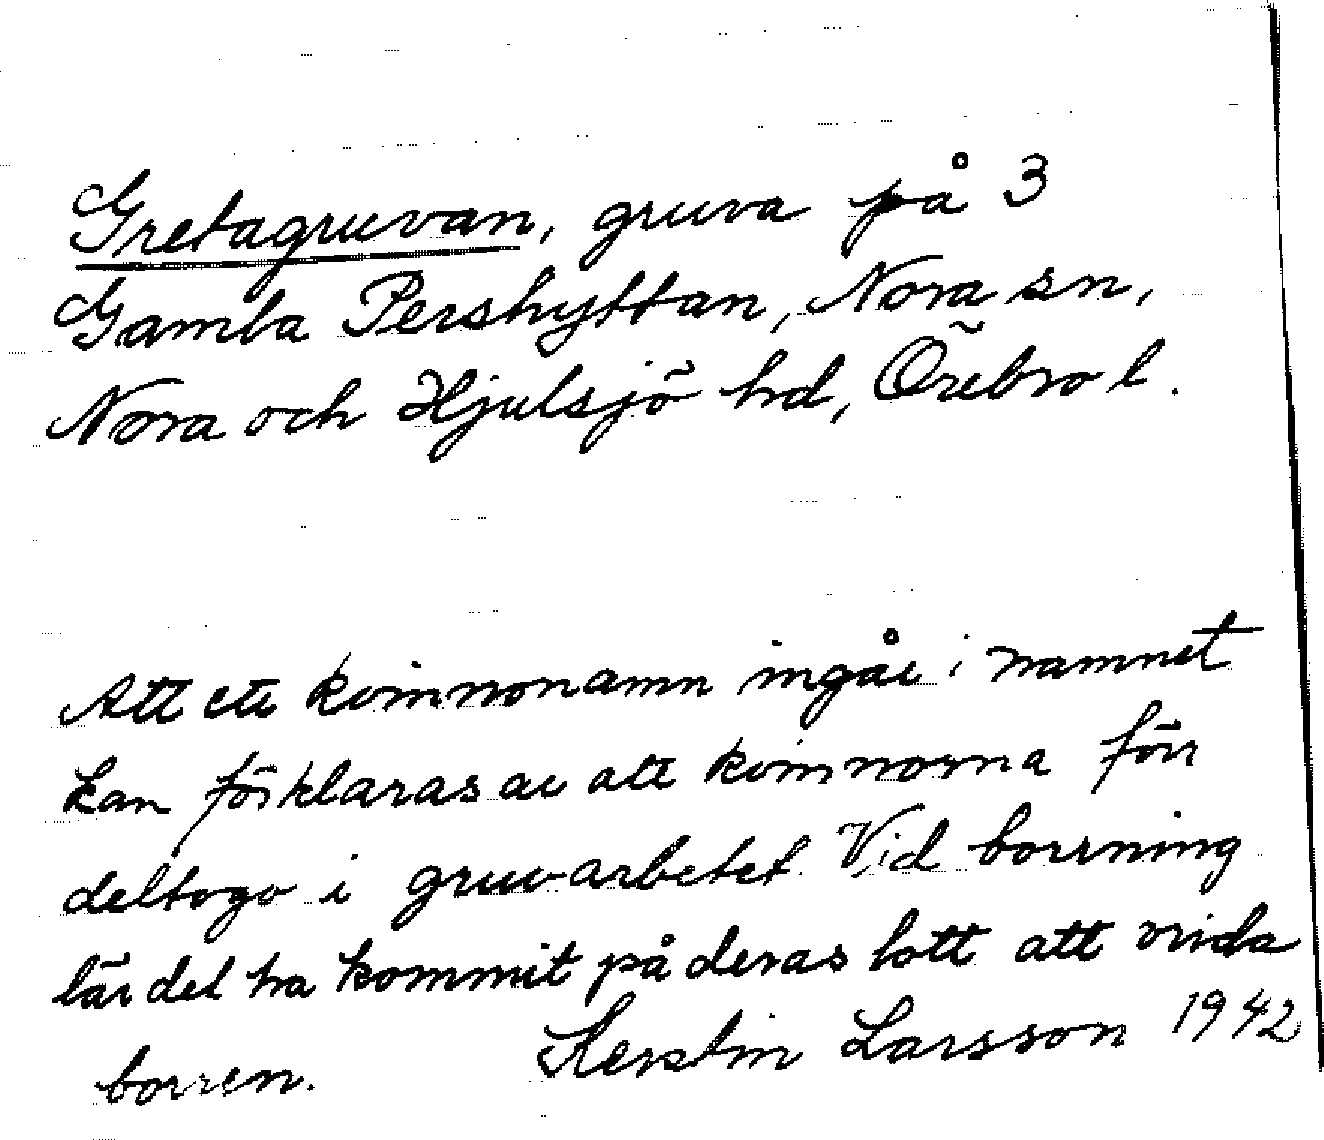 Gretagruvan, gruva på 3
Gamla Pershyttan, Nora sn,
Nora och Hjulsjö hd, Örebro l.
Att ett kvinnonamn ingår i namnet
kan förklaras av att kvinnorna förr
deltogo i gruvarbetet. Vid borrning
lär det ha kommit på deras lott att vrida
borren. Kerstin Larsson 1942